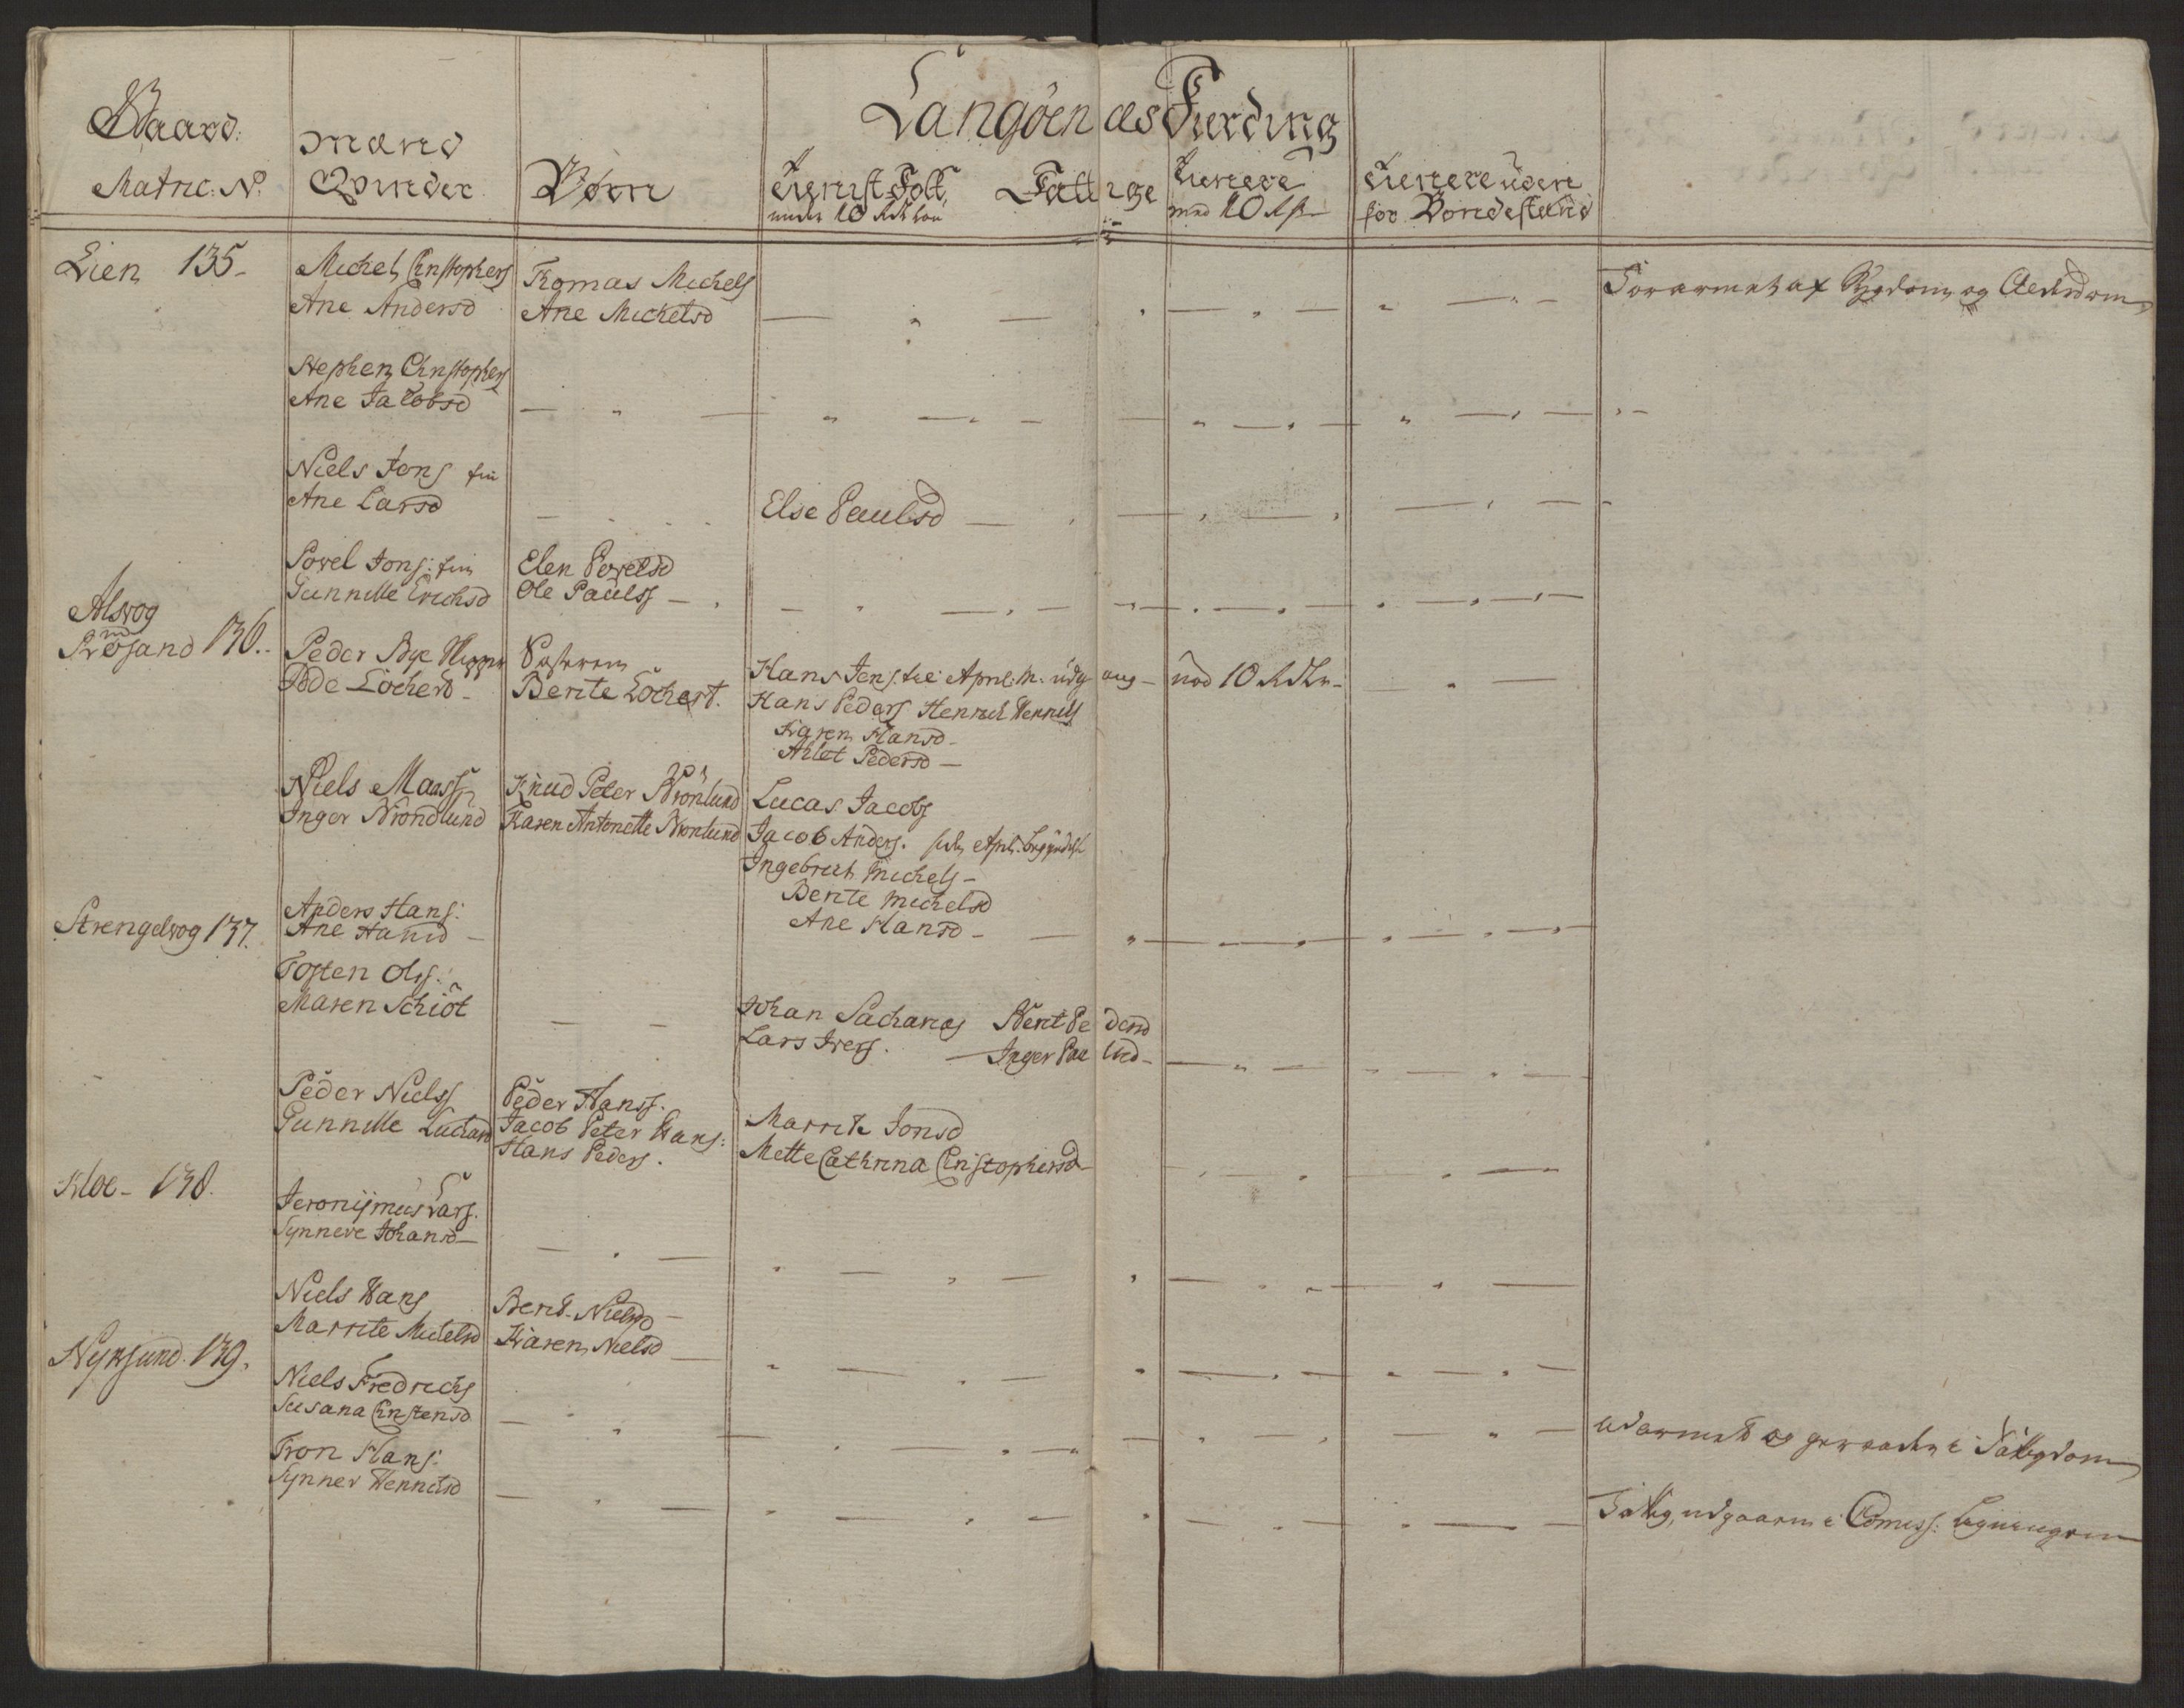 Langøenæs Fierding
Gaard:
Matric: N:
Mænd
Qvinder
Børn
Tienist Folk
under 10 Rdr løn
Fattige
Tienere
med 10 Rdr
Tienere uden
for Bondestand
Lien 135
Michel Christophers
Ane Andersd
Thomas Michels
Ane Michelsd
Forarmet af Sygdom og Alderdom
Stephen Christophers
Ane Jacobsd
Niels Jons fin
Ane Larsd
Else Paulsd
Povel Jons: fin
Gunnille Erichsd
Elen Povelsd
Ole Paulss
Alsvog
Røsand 136
Peder Bye
Bente Lochert
Hans Jens. April: M: udg
Hans Peders Henrich
Karen Hansd
Ahlet Pedersd
10 Rdr
Niels Maass
Inger Brønlund
Knud Peter Brønlund
Karen Antonette Brønlund
Lucas Jacobs
Jacob Anders.
Ingebricht Michels
Bente Michelsd
Ane Hansd
Strengelvog 137
Anders Hans:
Ane Hansd
Tosten Ols:
Maren Schiøt
Johan Sacharias Berit Pedersd
Lars Ivers. Inger Paulsd
Peder Nielss
Gunnille Lucasd
Peder Hanss.
Jacob Peter Hans:
Hans Peders.
Marrite Jonsd
Mette Cathrina Christophersd
Kloe 138
Jeronijmus Lars.
Synneve Johansd
Niels Hans
Marrite Michelsd
Berit Nielsd
Karen Nielsd
Nyksund 139
Niels Fredrichs
Susana Christensd
udarmet og geraaden i Fattigdom
Tron Hans:
Synnev
Fattig, udgaaen i Comiss: Ligningen